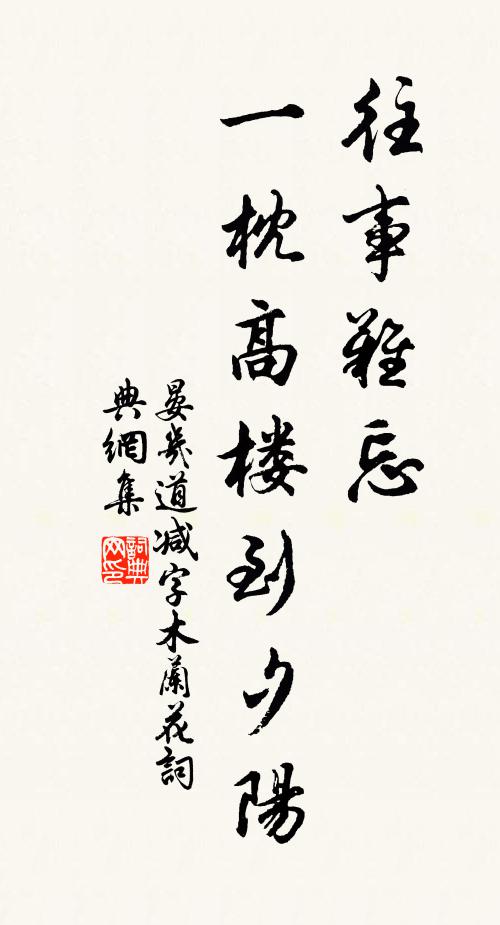 往事難忘
一枕高楼到夕陽
晏幾道減字木蘭花詞
典網集
詞典网印